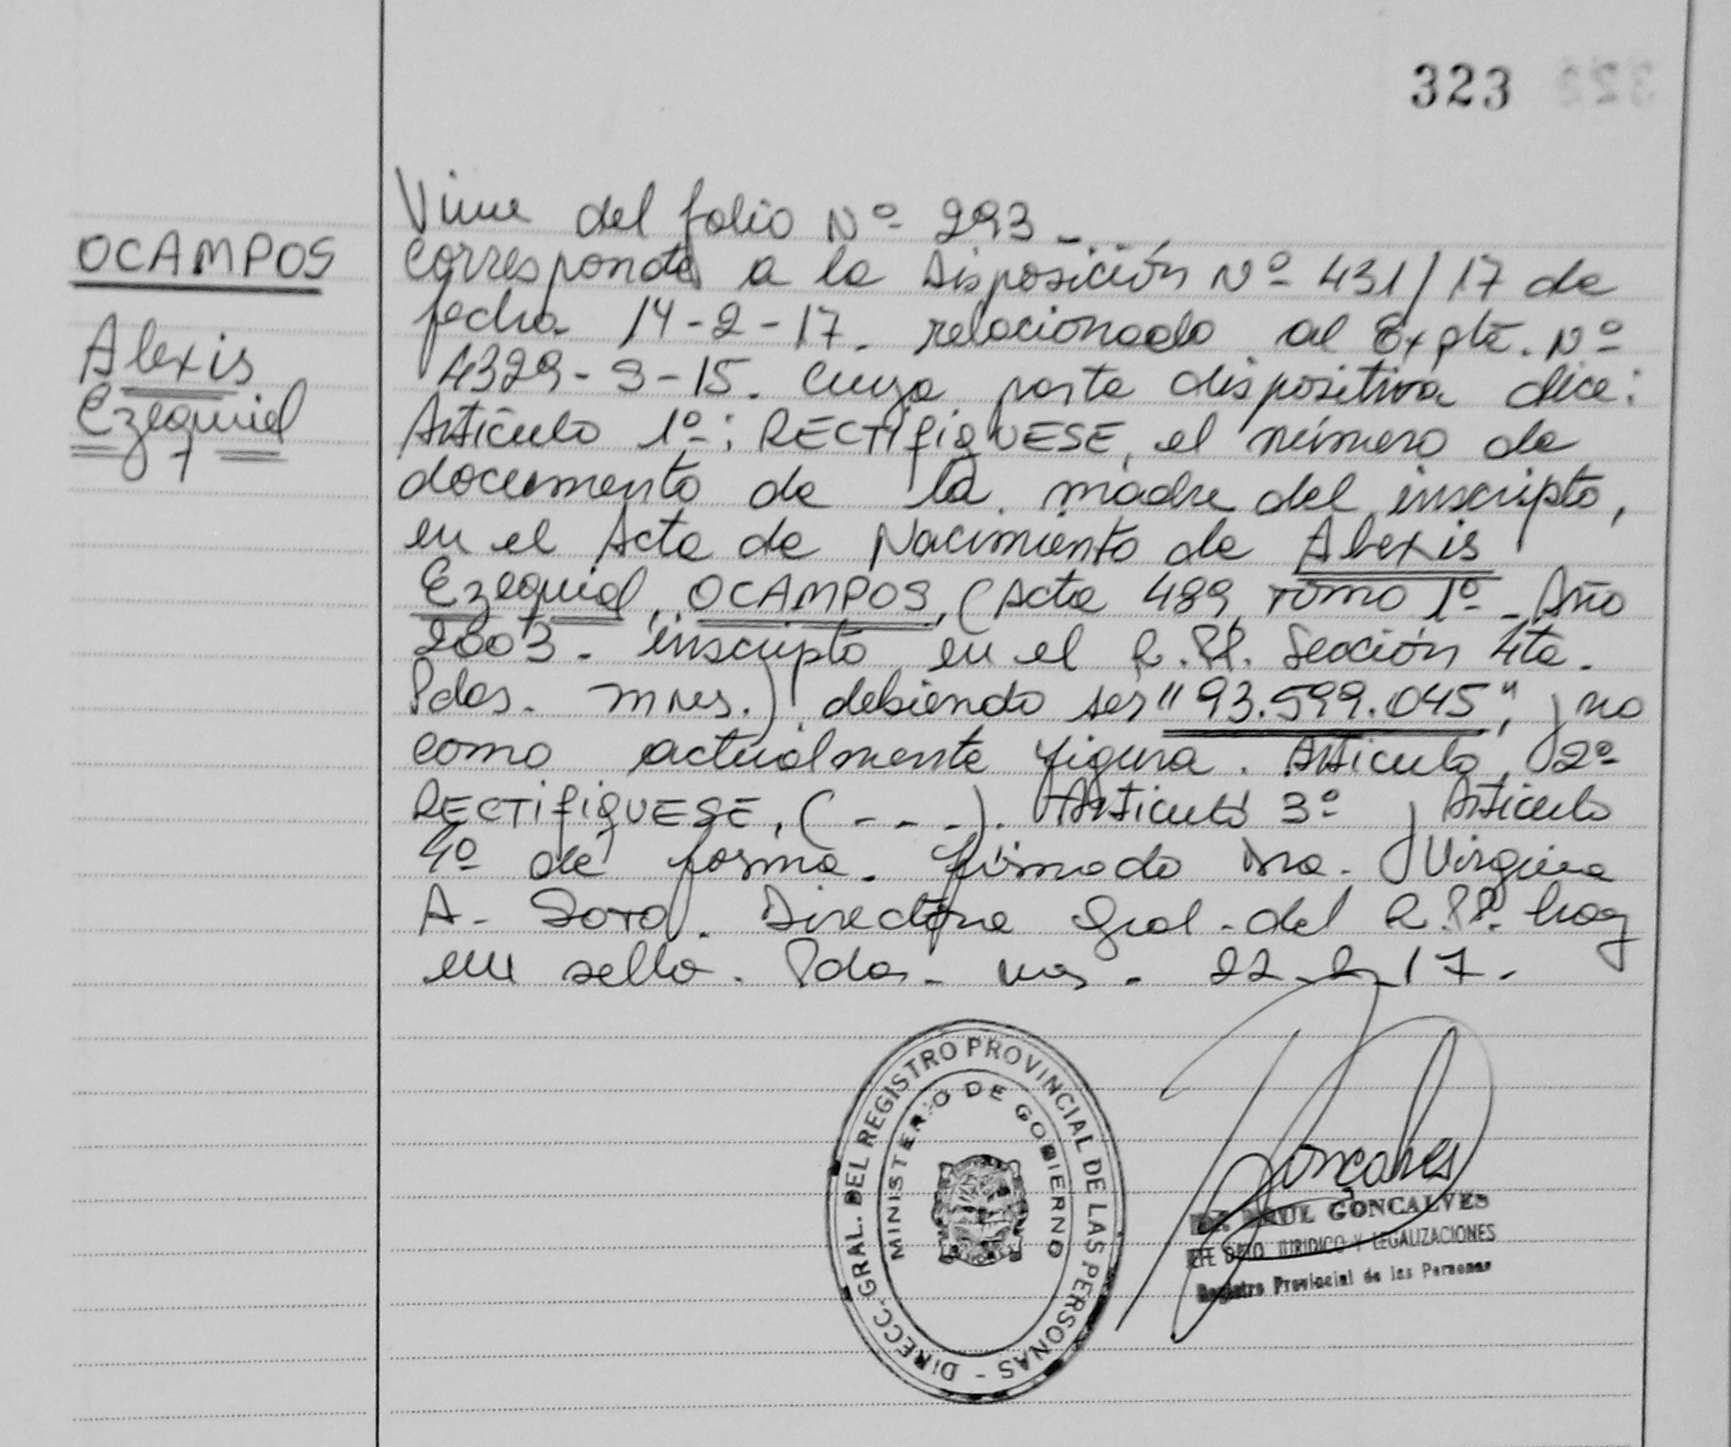 323
OCAMPOS
Alexis
Ezequiel
Viene del folio Nº 293 -
Corresponde a la Disposición Nº 431/17 de
fecha 14-2-17. relacionado al Expte. Nº
4329-9-15. Cuya parte dispositiva dice:
Artículo 1º: RECTIFIQUESE, el número de
documento de la madre del inscripto,
en el Acta de Nacimiento de Alexis
Ezequiel OCAMPOS, (Acta 489, Tomo 1º - Año
2003 - inscripto en el R.PP. Sección 4ta.
Pdas. Mnes.) debiendo ser "93.599.045", y no
como actualmente figura. Artículo 2º
RECTIFIQUESE, (- - -). Artículo 3º y Artículo
4º de forma. firmado Dra. Virginia
A. Soto. Directora Gral. del R.PP. hay
un sello. Pdas. Mns. 22-2-17.
DIRECC. GRAL. DEL REGISTRO PROVINCIAL DE LAS PERSONAS -
MINISTERIO DE GOBIERNO
Goncalves
RAUL GONCALVES
JEFE DPTO JURIDICO Y LEGALIZACIONES
Registro Provincial de las Personas